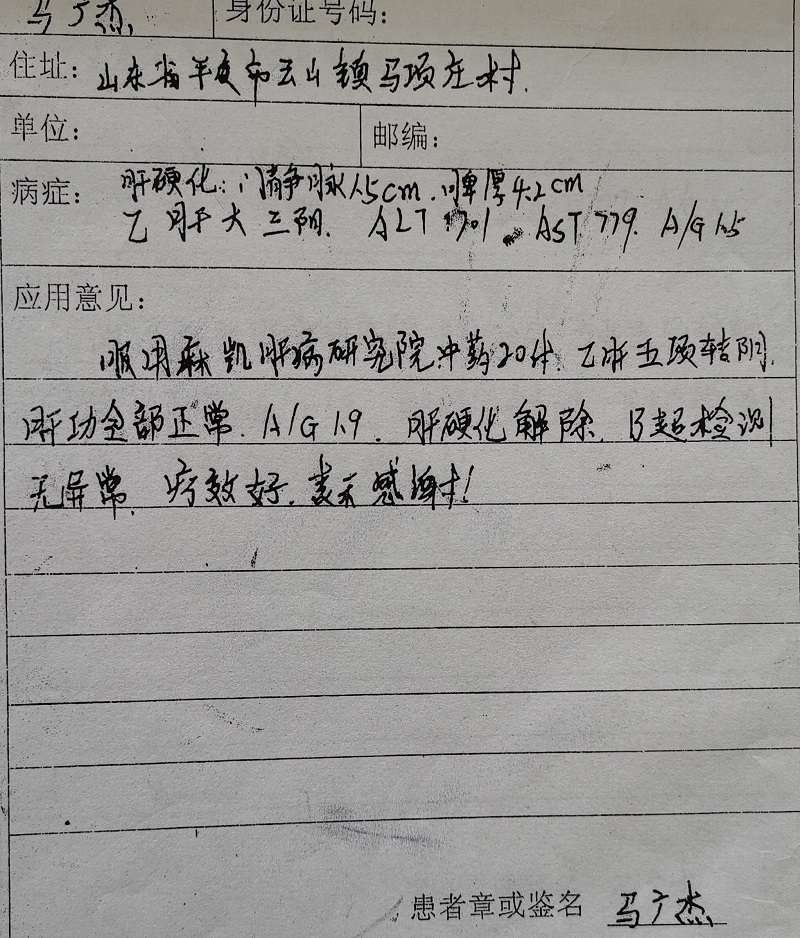 马广杰 身份证号码:
住址: 山东省平度市云山镇马项庄村.
单位: 邮编:
病症: 肝硬化: 门静脉1.5cm. 脾厚4.2cm
乙肝大三阳. ALT 1701 . AST 779. A/G 1.5
应用意见:
服用麻凯肝病研究院冲药20付. 乙肝五项转阴.
肝功全部正常. A/G 1.9. 肝硬化解除. B超检测
无异常. 疗效好. 表示感谢!
患者章或鉴名 马广杰